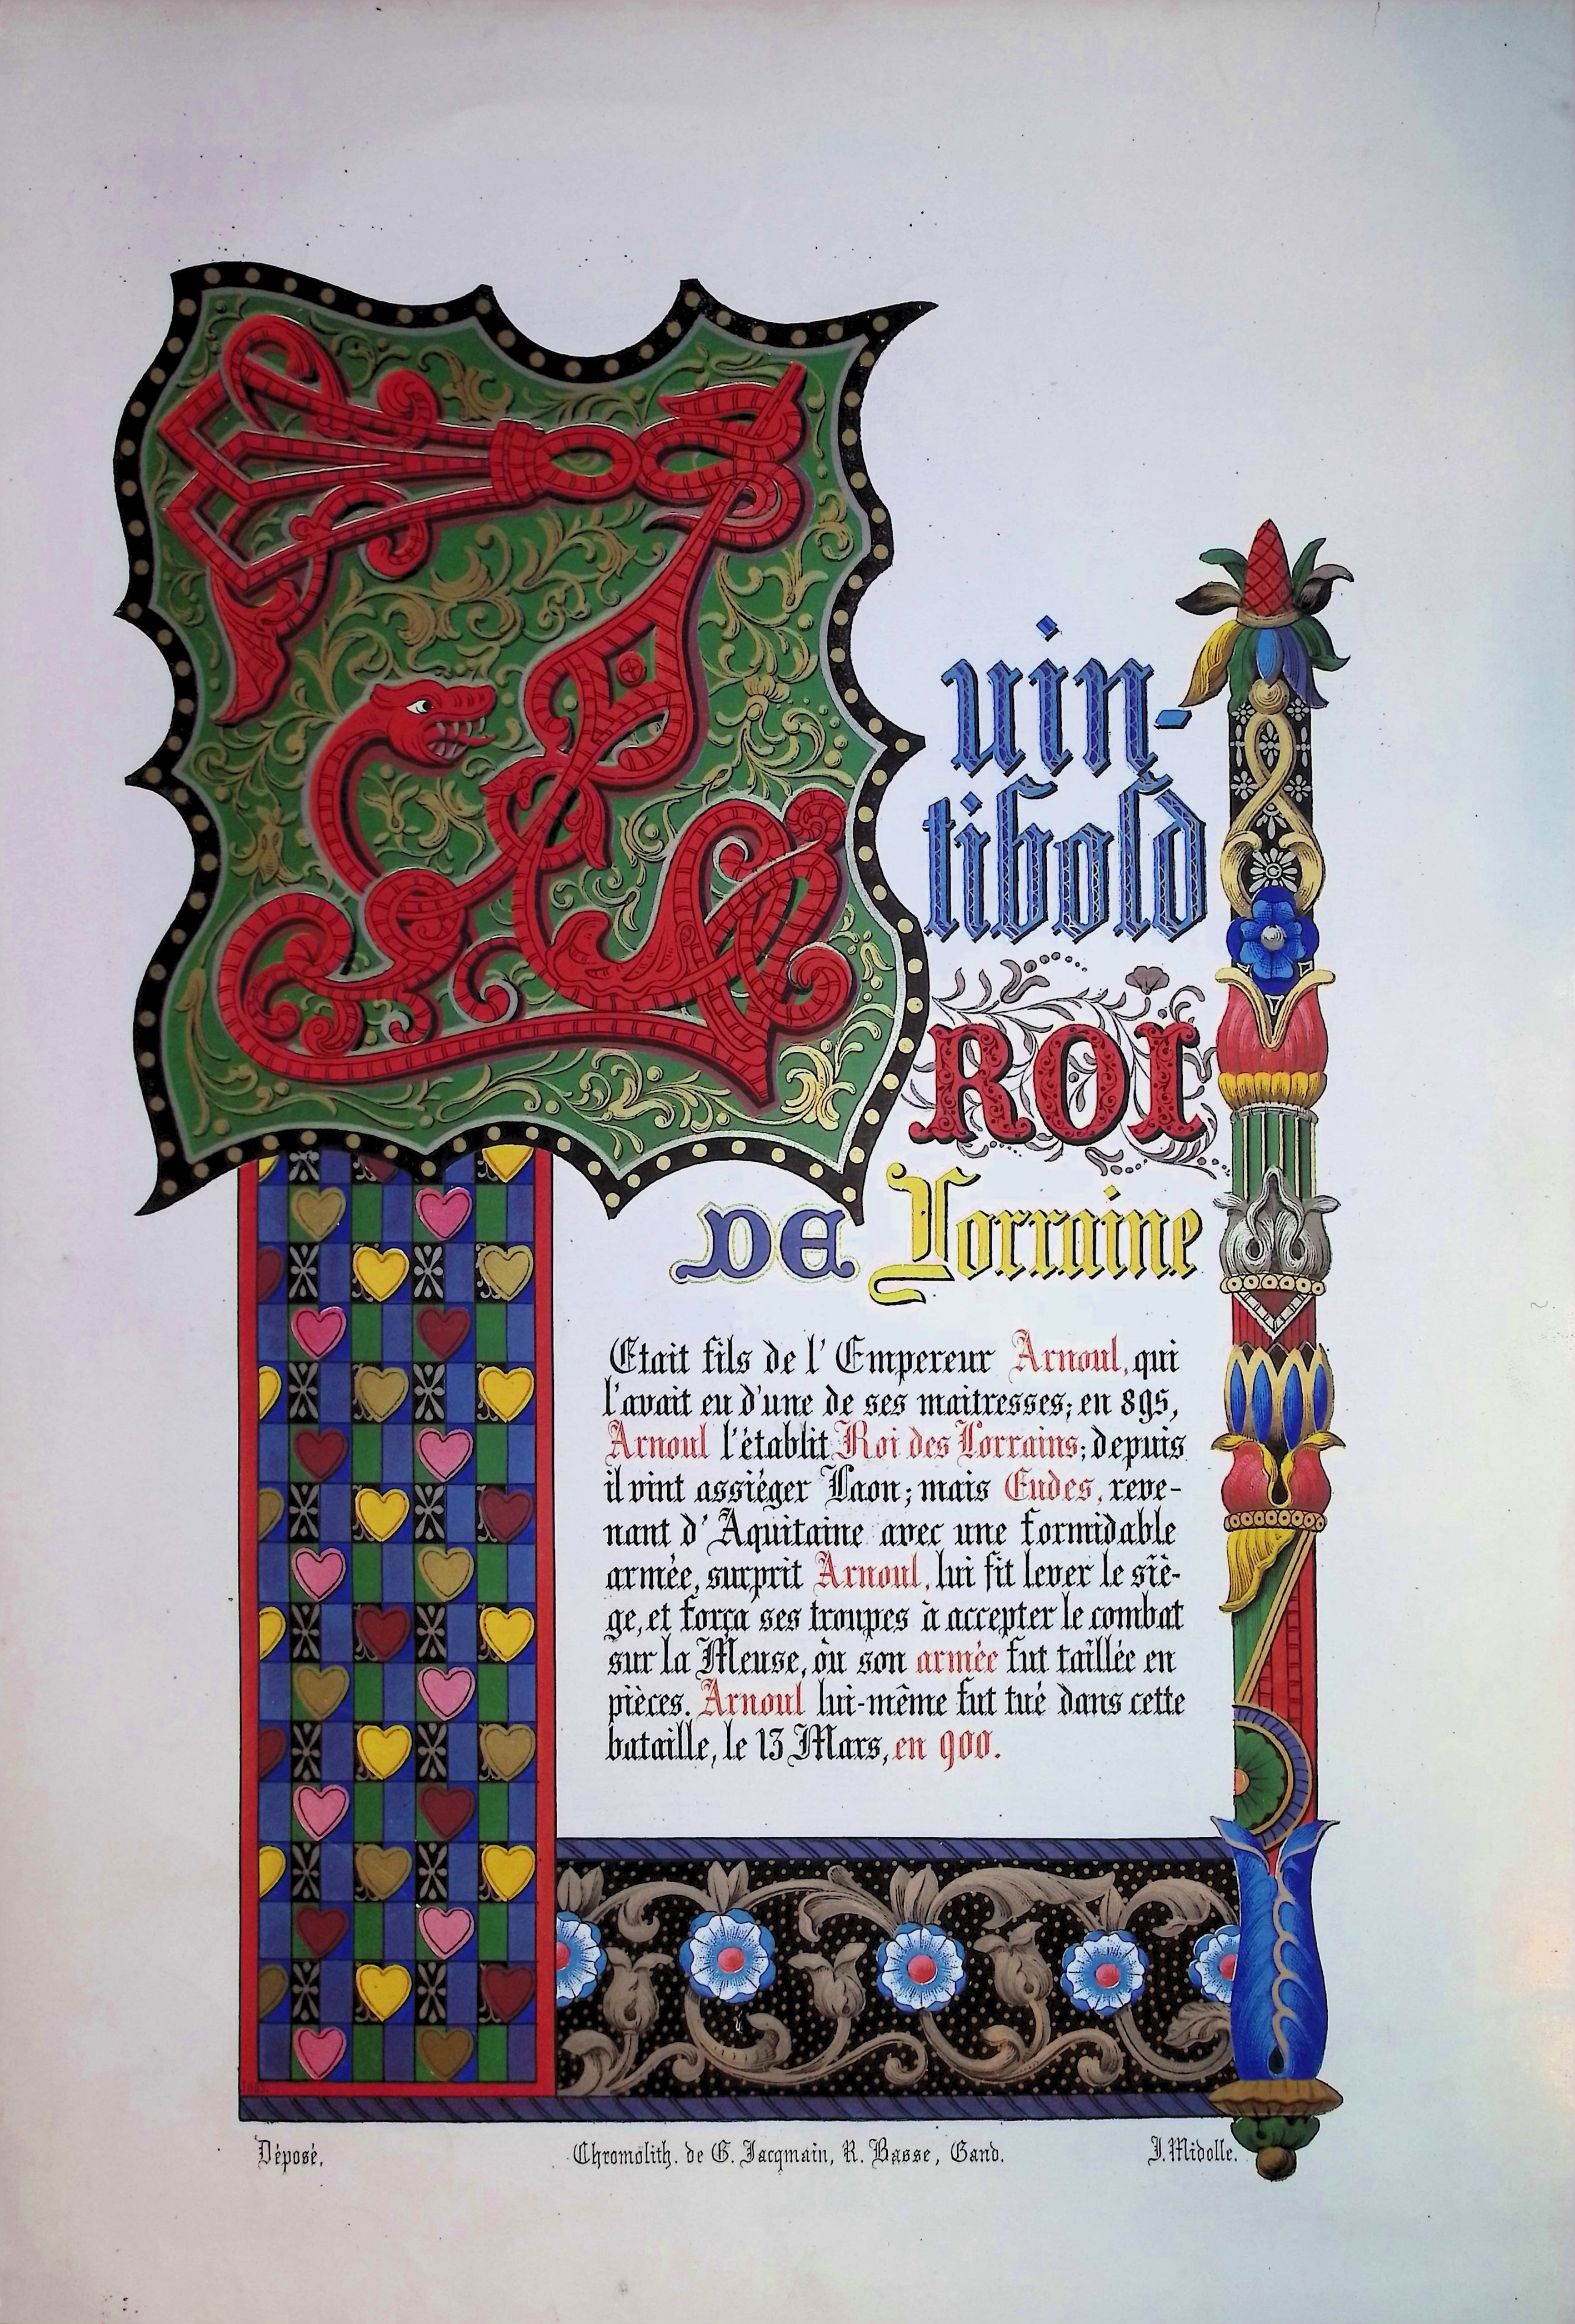 Zuin-
tibold
ROI
DE Lorraine
Etait fils de l' Empereur Arnoul, qui
l'avait eu d'une de ses maitresses; en 895,
Arnoul l'établit Roi des Lorrains; depuis
il vint assiéger Laon; mais Eudes, reve-
nant d' Aquitaine avec une formidable
armée, surprit Arnoul, lui fit lever le siè-
ge, et força ses troupes à accepter le combat
sur la Meuse, où son armée fut taillée en
pièces. Arnoul lui-même fut tué dans cette
bataille, le 13 Mars, en 900.
Déposé. Chromolith. de G. Jacqmain, R. Basse, Gand. J. Midolle.